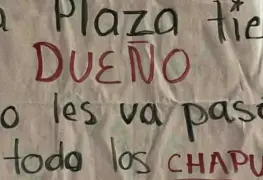 Plaza tie
DUEÑO
o les va pas
todo los CHAPU